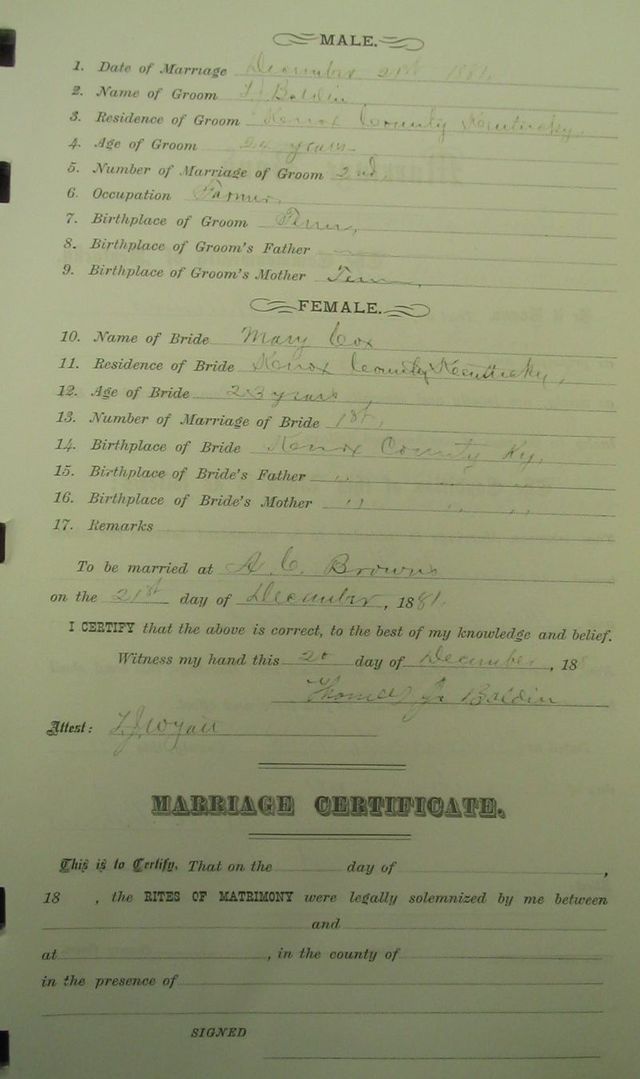 MALE.
1. Date of Marriage December 21st 1881.
2. Name of Groom T J Baldin
3. Residence of Groom Knox County Kentucky.
4. Age of Groom years
5. Number of Marriage of Groom 2nd,
6. Occupation Farmer,
7. Birthplace of Groom Tenn,
8. Birthplace of Groom's Father
9. Birthplace of Groom's Mother Tenn,
FEMALE.
10. Name of Bride Mary Cox
11. Residence of Bride Knox County Kentucky,
12. Age of Bride 23 years,
13. Number of Marriage of Bride 1st,
14. Birthplace of Bride Knox County Ky,
15. Birthplace of Bride's Father " "
16. Birthplace of Bride's Mother " " "
17. Remarks
To be married at A. C. Browns
on the 21st day of December, 1881.
I CERTIFY that the above is correct, to the best of my knowledge and belief.
Witness my hand this 20 day of December, 18
Thomas J. Baldin
Attest:
MARRIAGE CERTIFICATE.
This is to Certify, That on the day of ,
18 , the RITES OF MATRIMONY were legally solemnized by me between
and
at , in the county of
in the presence of
SIGNED